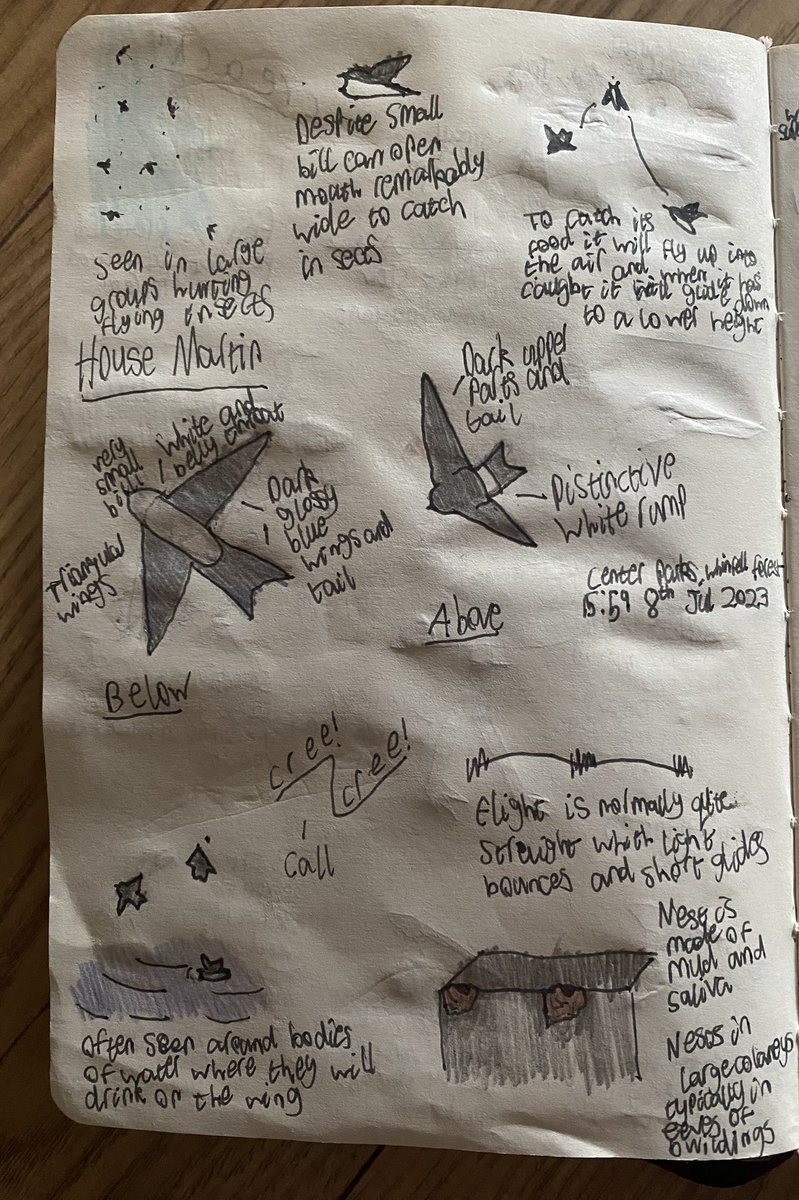 Despite small
bill can open
mouth remarkably
wide to catch
insects
To catch its
food it will fly up into
the air and when it has
caught it will glide down
to a lower height
Seen in large
groups hunting
flying insects
House Martin
very
small
bill
white and
belly throat
Dark
glossy
blue
wings and
tail
Triangular
wings
Below
Dark upper
parts and
tail
Distinctive
white rump
Above
Center Parks, Whinfell forest
15:59 8th Jul 2023
cree!
cree!
call
Flight is normally quite
streight which light
bounces and short glides
Often seen around bodies
of water where they will
drink on the wing
Nest is
made of
mud and
saliva
Nests in
large
typically in
eaves of
buildings